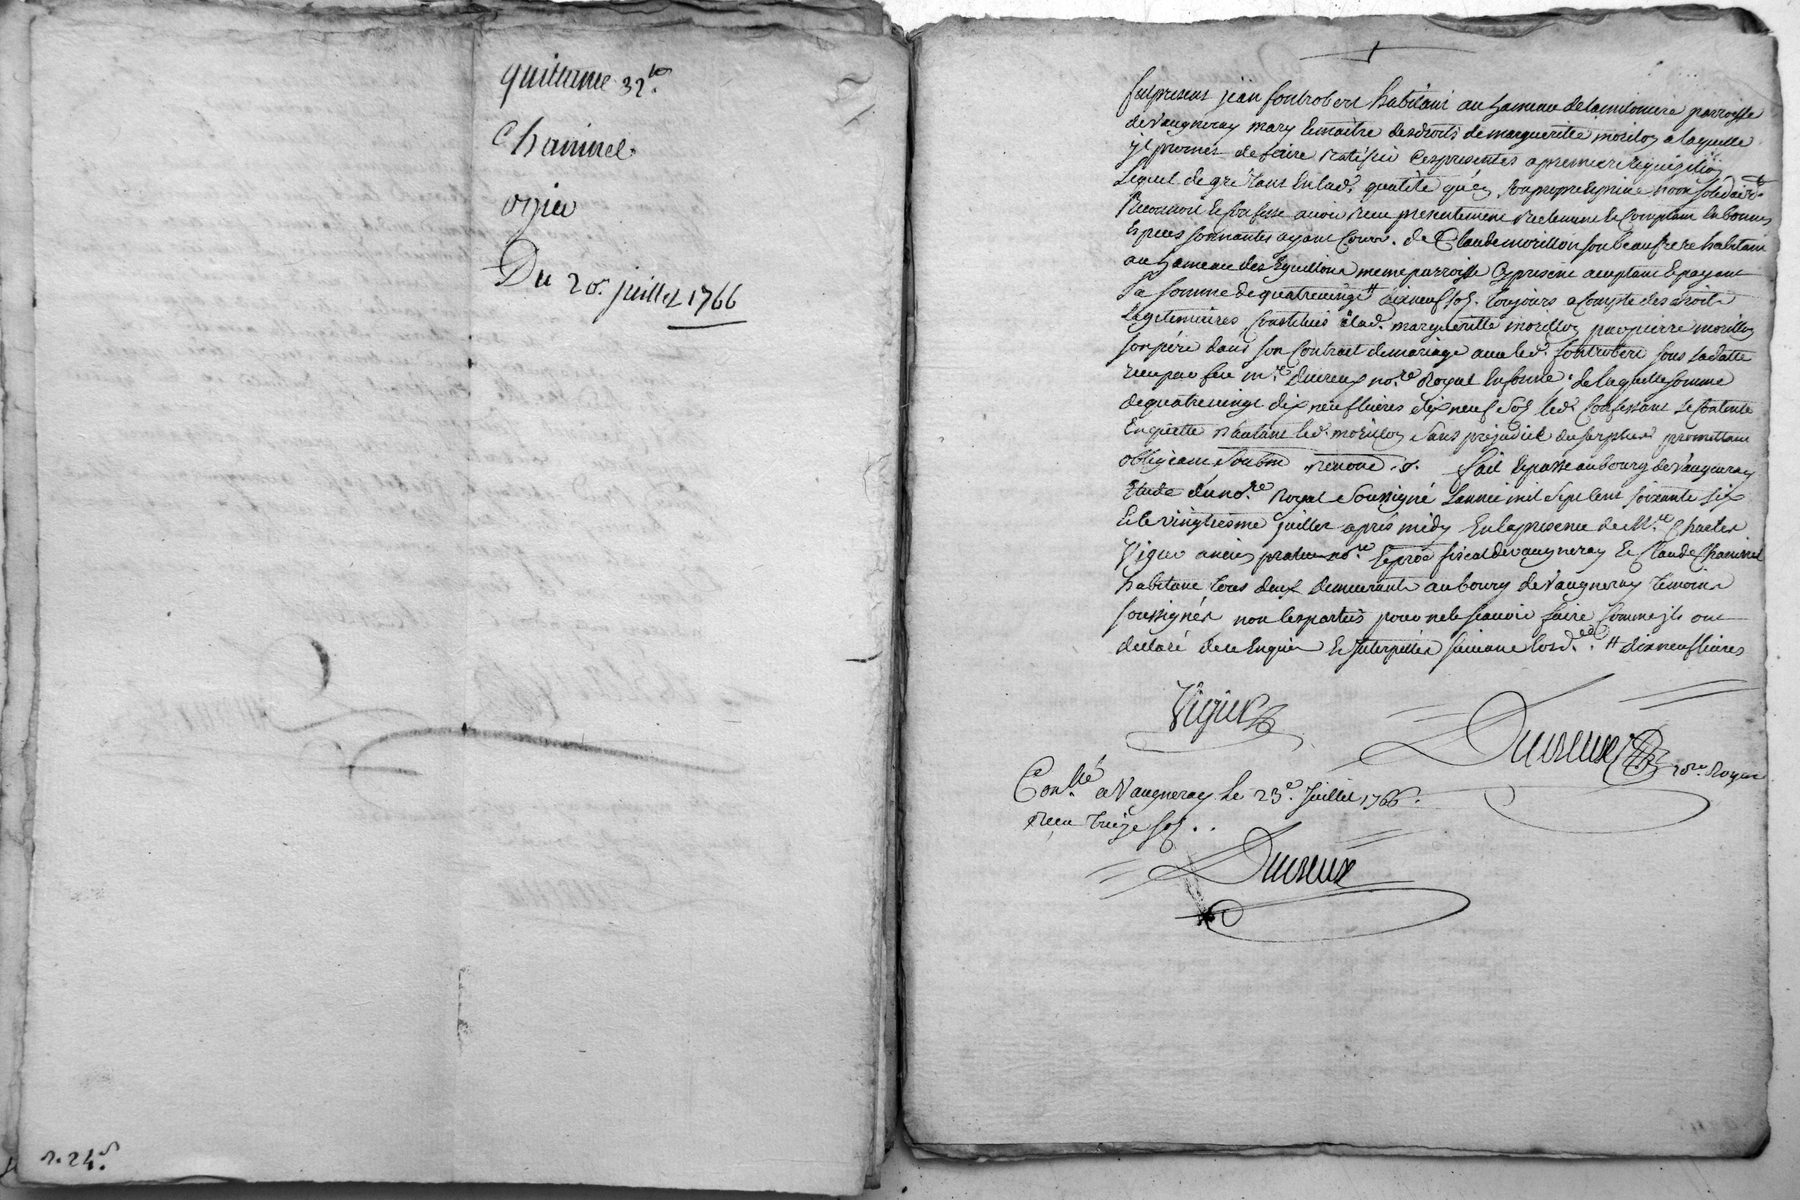 quittance 32ᵗᵗ
Chaminel
ogier
Du 20. juillet 1766
2. 24.ˢ
fut present jean fontrobert habitant au hameau de la miloniere parroisse
de Vaugneray mary et maitre des droits de margueritte morillon a laquelle
jl promet de faire Ratifier ces presentes a premiere requisition
Lequel de gré tant en lad. qualité qu'en son propre et privé nom solidaire.ᵗ
Reconnoit et confesse avoir Receu presentement Reelement et comptant en bonnes
Especes sonnantes ayant cours. de Claude morillon son beaufrere habitant
au hameau des Eguillons meme parroisse cy present acceptant et payant
La somme de quatrevingt # dixneuf sols. toujours a compte des droits
Legitimaires constitués a lad. margueritte morillon par pierre morillon
son pere dans son Contrat de mariage avec led. fontrobert sous sa datte
receu par feu mᵉ. Duireux noʳᵉ Royal en forme. de laquelle somme
de quatrevingt dix neuf livres dix neuf sols led. Confessant se contente
En quitte d'autant led. morillon sans prejudice du surplus promettant
obligeant soubm renonc. &. fait et passé au bourg de Vaugneray
Etude du noʳᵉ Royal soussigné L'année mil sept cent soixante six
Et le vingtiesme juillet apres midy En la presence de Mʳᵉ Charles
Vigier ancien praticien noʳᵉ et proc fiscal de vaugneray Et Claude Chaminel
habitant tous deux demeurants au bourg de Vaugneray temoins
soussignés non les parties pour ne le scavoir faire comme jls ont
declaré de ce Enquis Et Interpellés suivant l'ord.ᶜᵉ. # dix neuf livres
Vigier
Duireux noʳᵉ Royal
Con.ˡˡᵉ́ a Vaugneray le 23ᵉ. Juillet 1766.
Receu treize sols..
Duireux